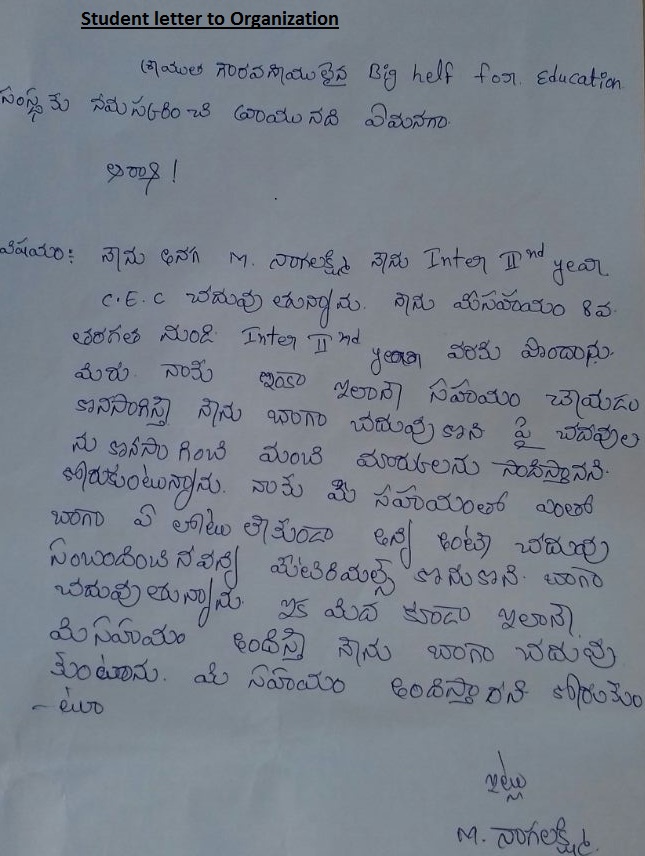 Student letter to Organization
శ్రీయుత గౌరవనీయులైన Big helf for Education
సంస్థ కు నమస్కరించి వ్రాయునది ఏమనగా.
విషయం: నేను అనగ M. నాగలక్ష్మి నేను Inter II nd year
C.E.C చదువు తున్నాను. నేను మీసహాయం 8వ
తరగతి నుండి Inter II nd year వరకు పొందాను.
మీరు నాకు ఇంకా ఇలానే సహాయం చేయడం
కొనసాగిస్తే నేను బాగా చదువు కొని పై చదువుల
ను కొనసా గించి మంచి మార్కులను సాదిస్తానని.
కోరుకుంటున్నాను. నాకు మీ సహాయంతో ఎంతో
బాగా ఏ లోటు లేకుండా అన్ని అంటే చదువు
సంబందించి నవన్ని మెటిరియల్స్ కొనుకొని. బాగా
చదువు తున్నాను. ఇక మీద కూడా ఇలానే
మీ సహాయం అందిస్తే నేను బాగా చదువు
కుంటాను. మీ సహాయం అందిస్తా రని కోరుకుం
-టూ
ఇట్లు
M. నాగలక్ష్మి.